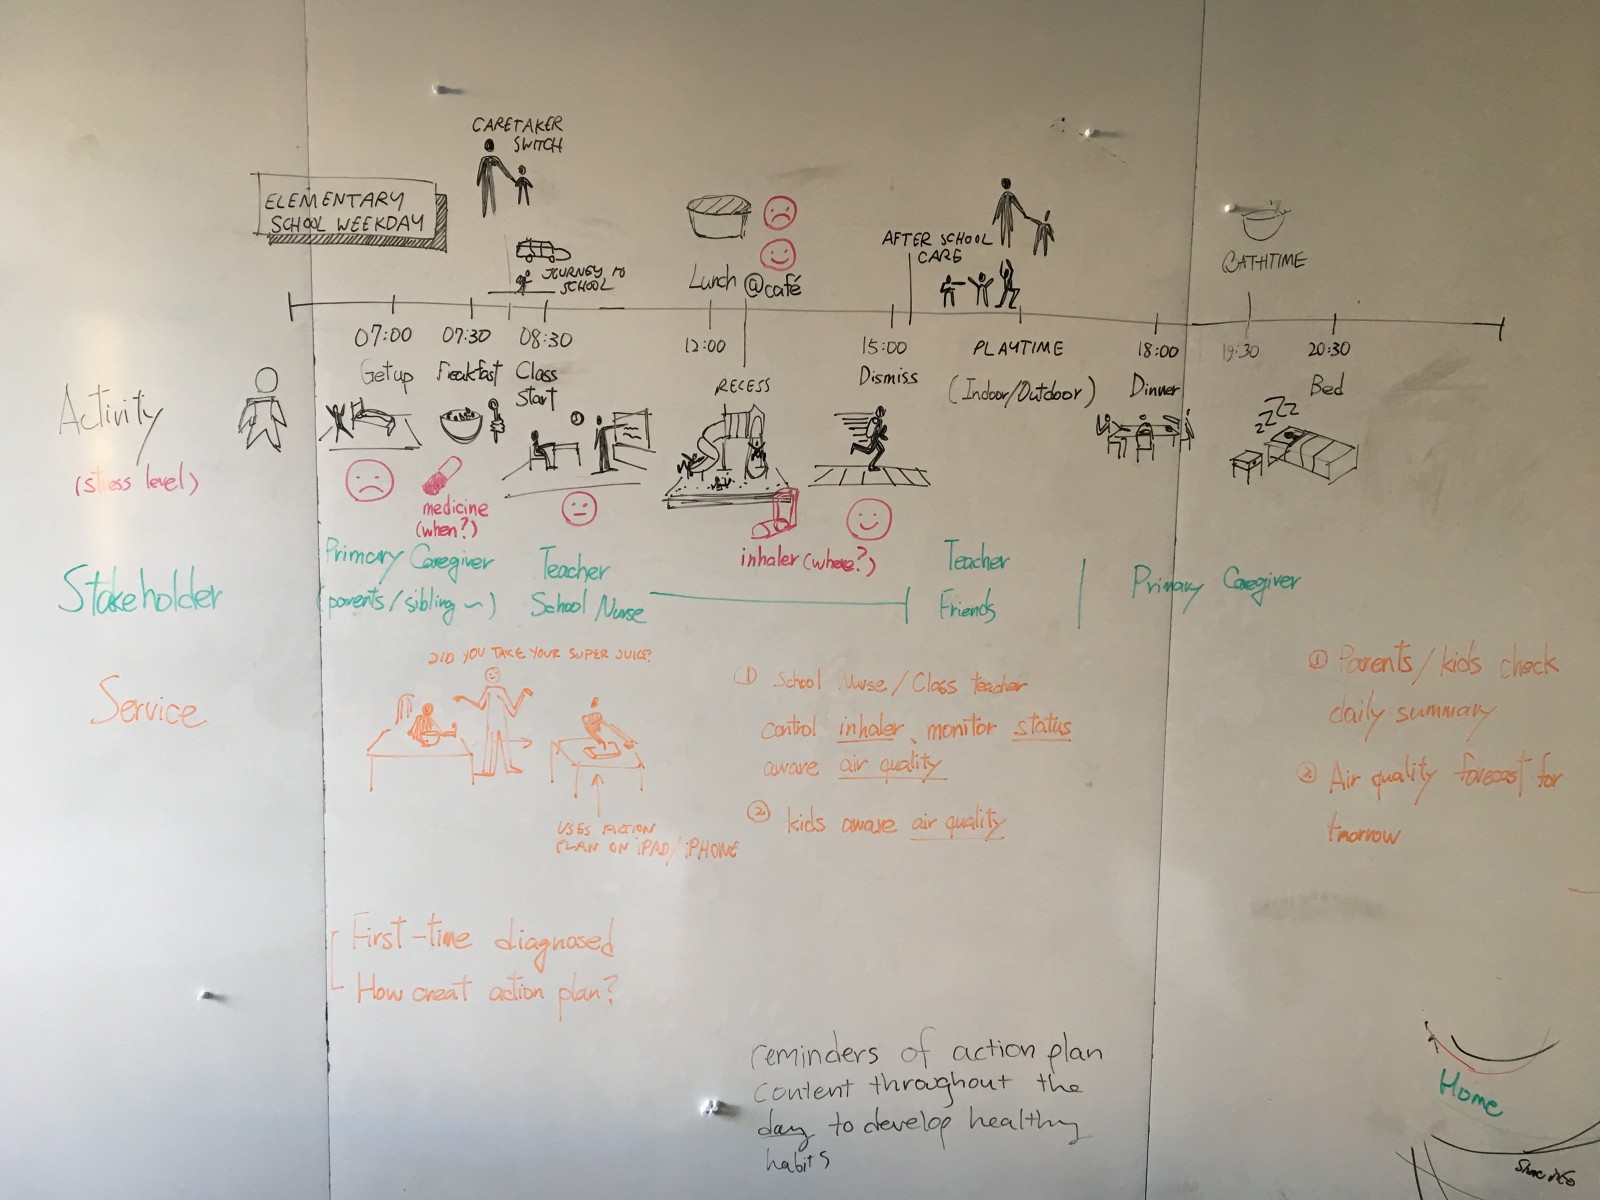 CARETAKER
SWITCH
ELEMENTARY
SCHOOL WEEKDAY
JOURNEY TO
SCHOOL
Lunch @café
AFTER SCHOOL
CARE
BATHTIME
07:00
07:30
08:30
12:00
15:00
PLAYTIME
18:00
19:30
20:30
Get up
Breakfast
Class
Start
RECESS
Dismiss
(Indoor/Outdoor)
Dinner
Bed
Activity
(stress level)
zzzz
medicine
(when?)
inhaler (where?)
Stakeholder
Primary Caregiver
(parents/sibling ~)
Teacher
School Nurse
Teacher
Friends
Primary Caregiver
Service
DID YOU TAKE YOUR SUPER JUICE?
USES ACTION
PLAN ON iPAD/iPHONE
① School Nurse/Class teacher
control inhaler、monitor status
aware air quality
② kids aware air quality
① Parents/kids check
daily summary
② Air quality forecast for
tmorrow
First-time diagnosed
How creat action plan?
reminders of action plan
content throughout the
day to develop healthy
habits
Home